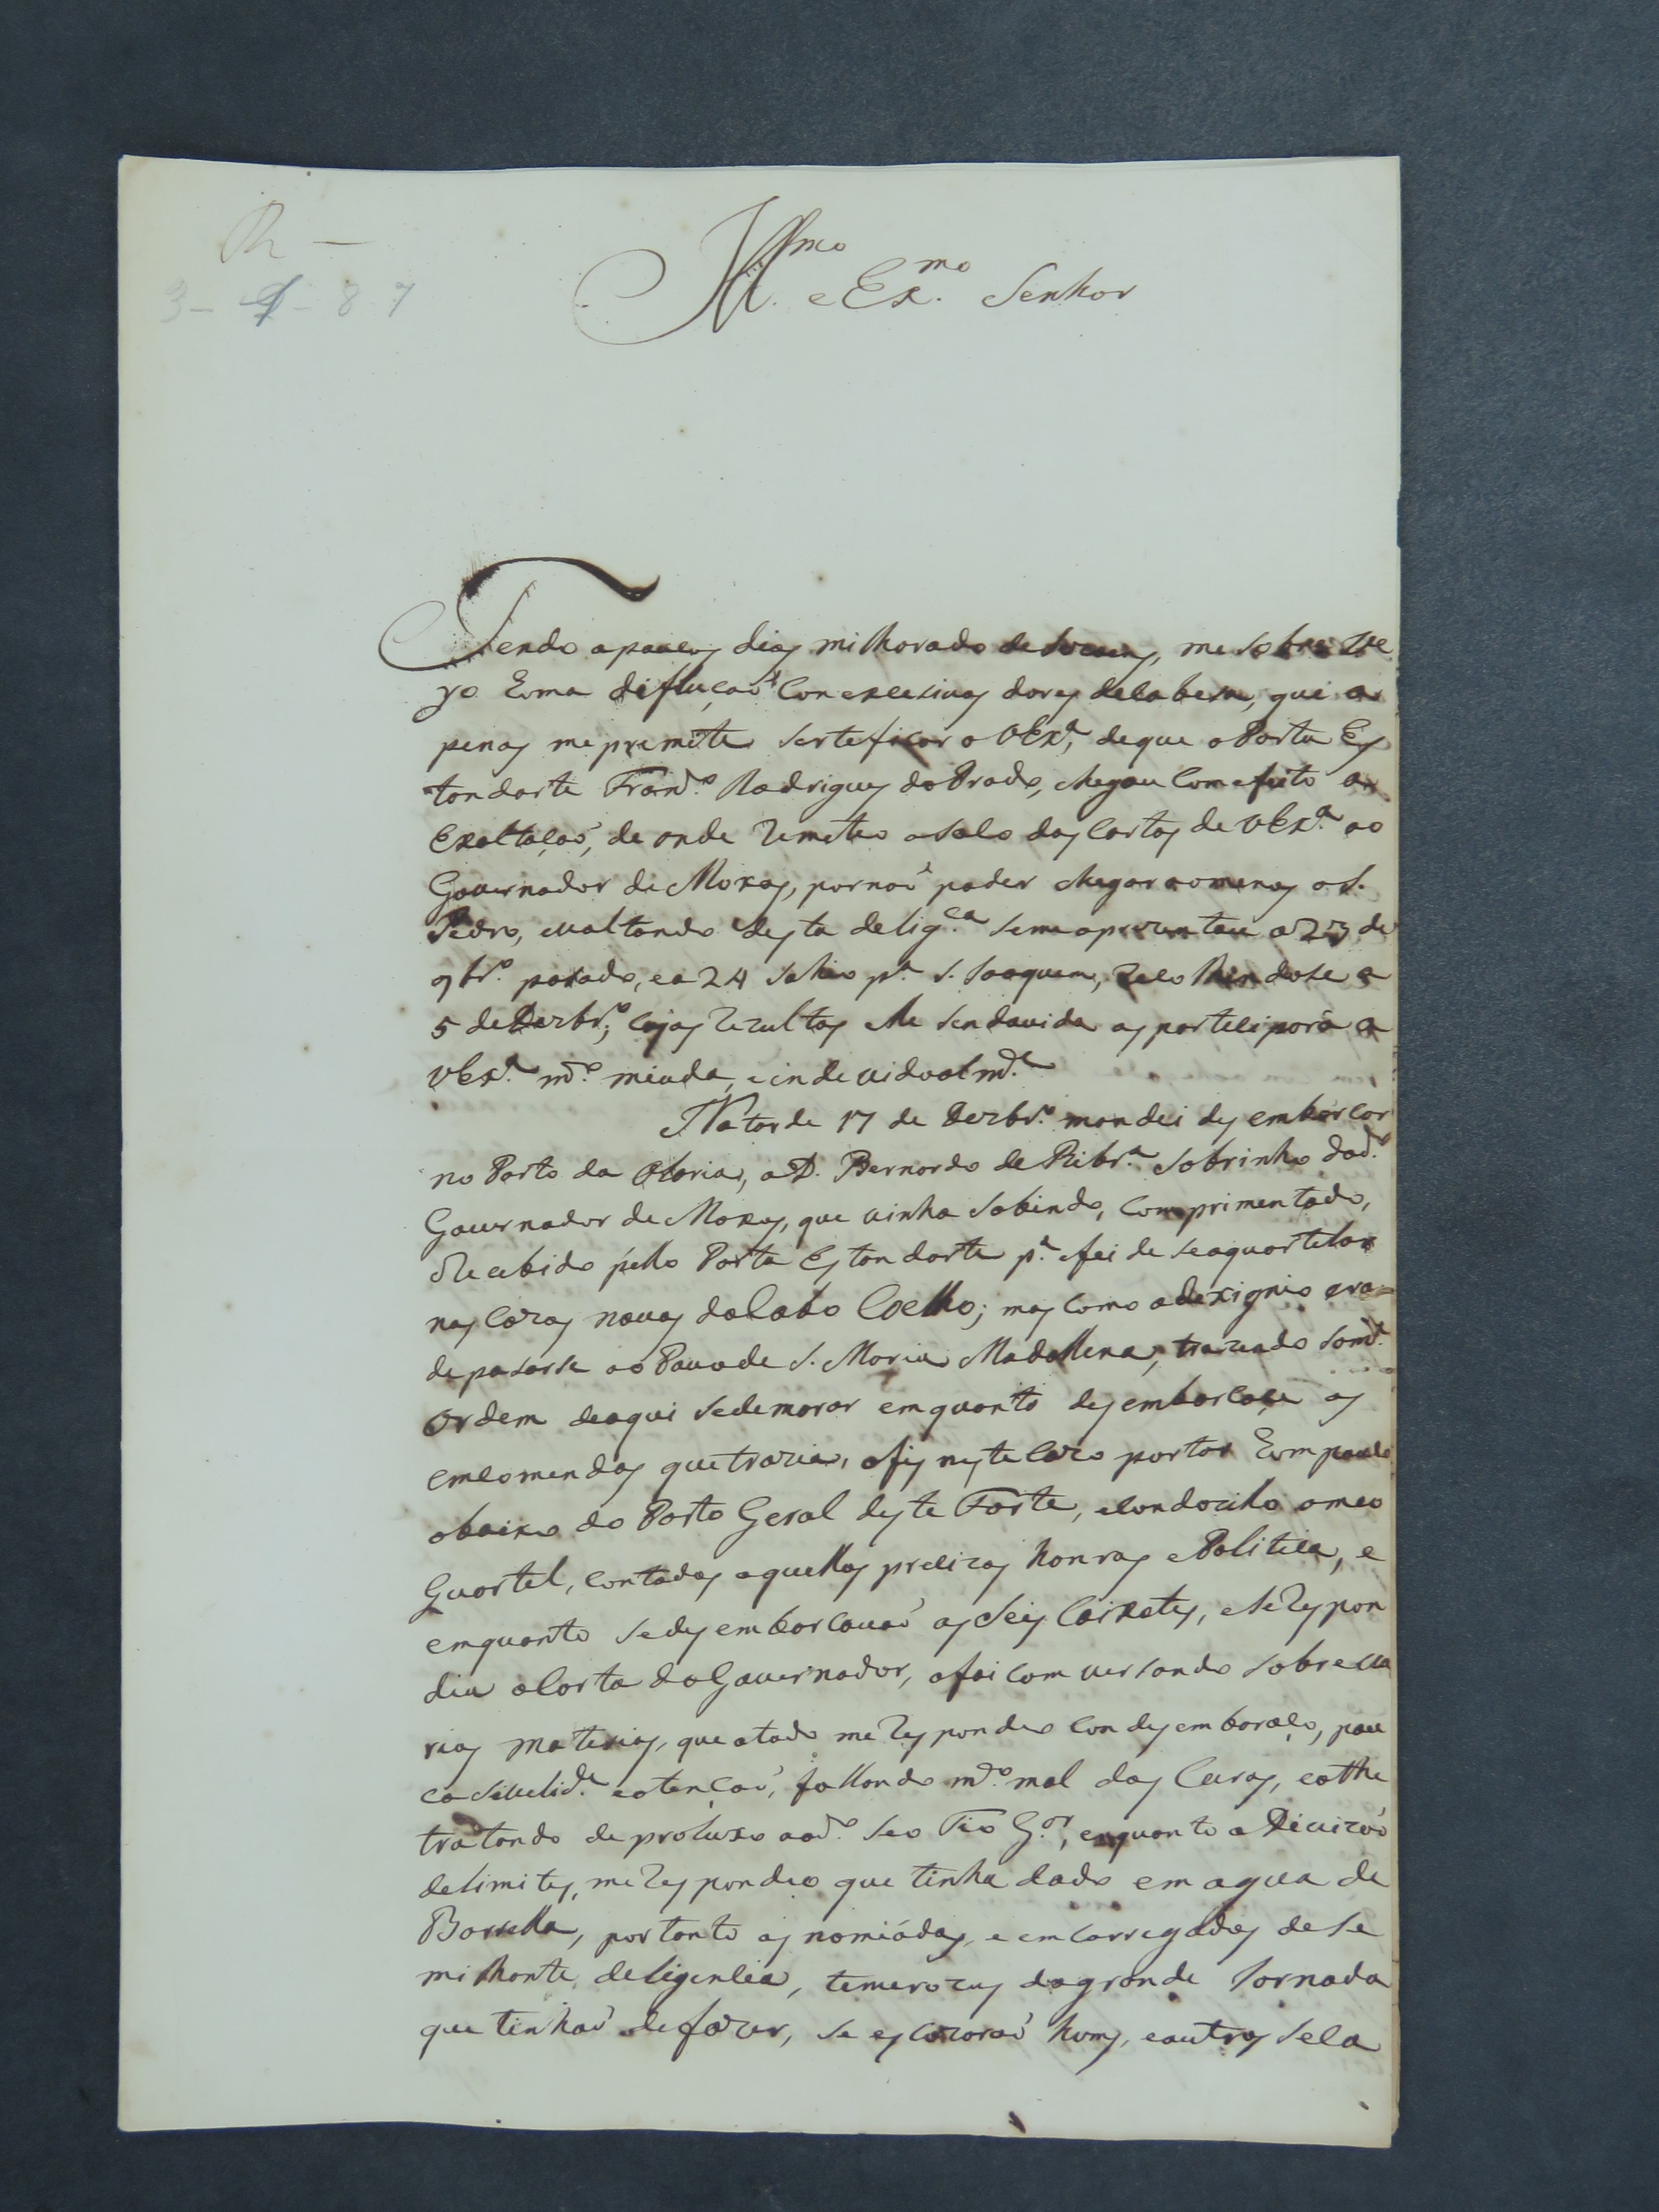 R —
3 - 1 - 87
Ill.mo e Ex.mo Senhor
Tendo a poucos dias milhorado de me sobre ve
yo huma difluçaõ con excesivas dores de cabesa, que a
penas me premite serteficar a VEx.ª, de que o Porta Es
tandarte Fran.co Rodrigues do Prado, chegou com efeito a
Exaltaçaõ, de onde remeteo a salo das Cartas de VEx.ª ao
Governador de Moxos, por naõ poder chegar ao menos a S.
Pedro, e voltando desta delig.ca se me aprezentou a 23 de
9br.o pasado, e a 24 sahio p.ª S. Joaquim, recolhendose a
5 de Dezbr.o; cujas rezultas elle sen duvida as partecipará a
VEx.ª m.to miuda, e indevidoalm.te
Na tarde 17 de Dezbr.o mandei desembarcar
no Porto da Olaria, a D. Bernardo de Ribr.ª Sobrinho do d.o
Governador de Moxos, que vinha sobindo, comprimentado,
e recebido pello Porta Estandarte p.ª efei de se aquartelar
nas Cazas novas do Cabo Coelho; mas como o dezignio era
de pasarse ao Povo de S. Maria Madallena, trazendo som.te
ordem de aqui se demorar emquanto desembarcase as
emcomendas que trazia, o fis neste cazo portar hum pouco
abaixo do Porto Geral deste Forte, e conduzilo a meo
Quartel, con todas aquellas precizas honras e Politica, e
emquanto se desembarcavaõ as seis Caixetes, e se respon
dia a Carta do Governador, o foi comversando sobre va
rias materias, que a todo me respondeo con desembaraço, pou
ca sivelid.e e atençaõ, fallando m.to mal dos Curas, e athe
tratando de proluxo ao d.o seo Tio G.or, enquanto a Divizaõ
de limites, me respondeo que tinha dado em agua de
Borrella, por tanto os nomiádos, e emcarregados de se
milhante deligencia, temerozos da grande Jornada
que tinhaõ de fazer, se escuzaraõ huns, e outros se ca